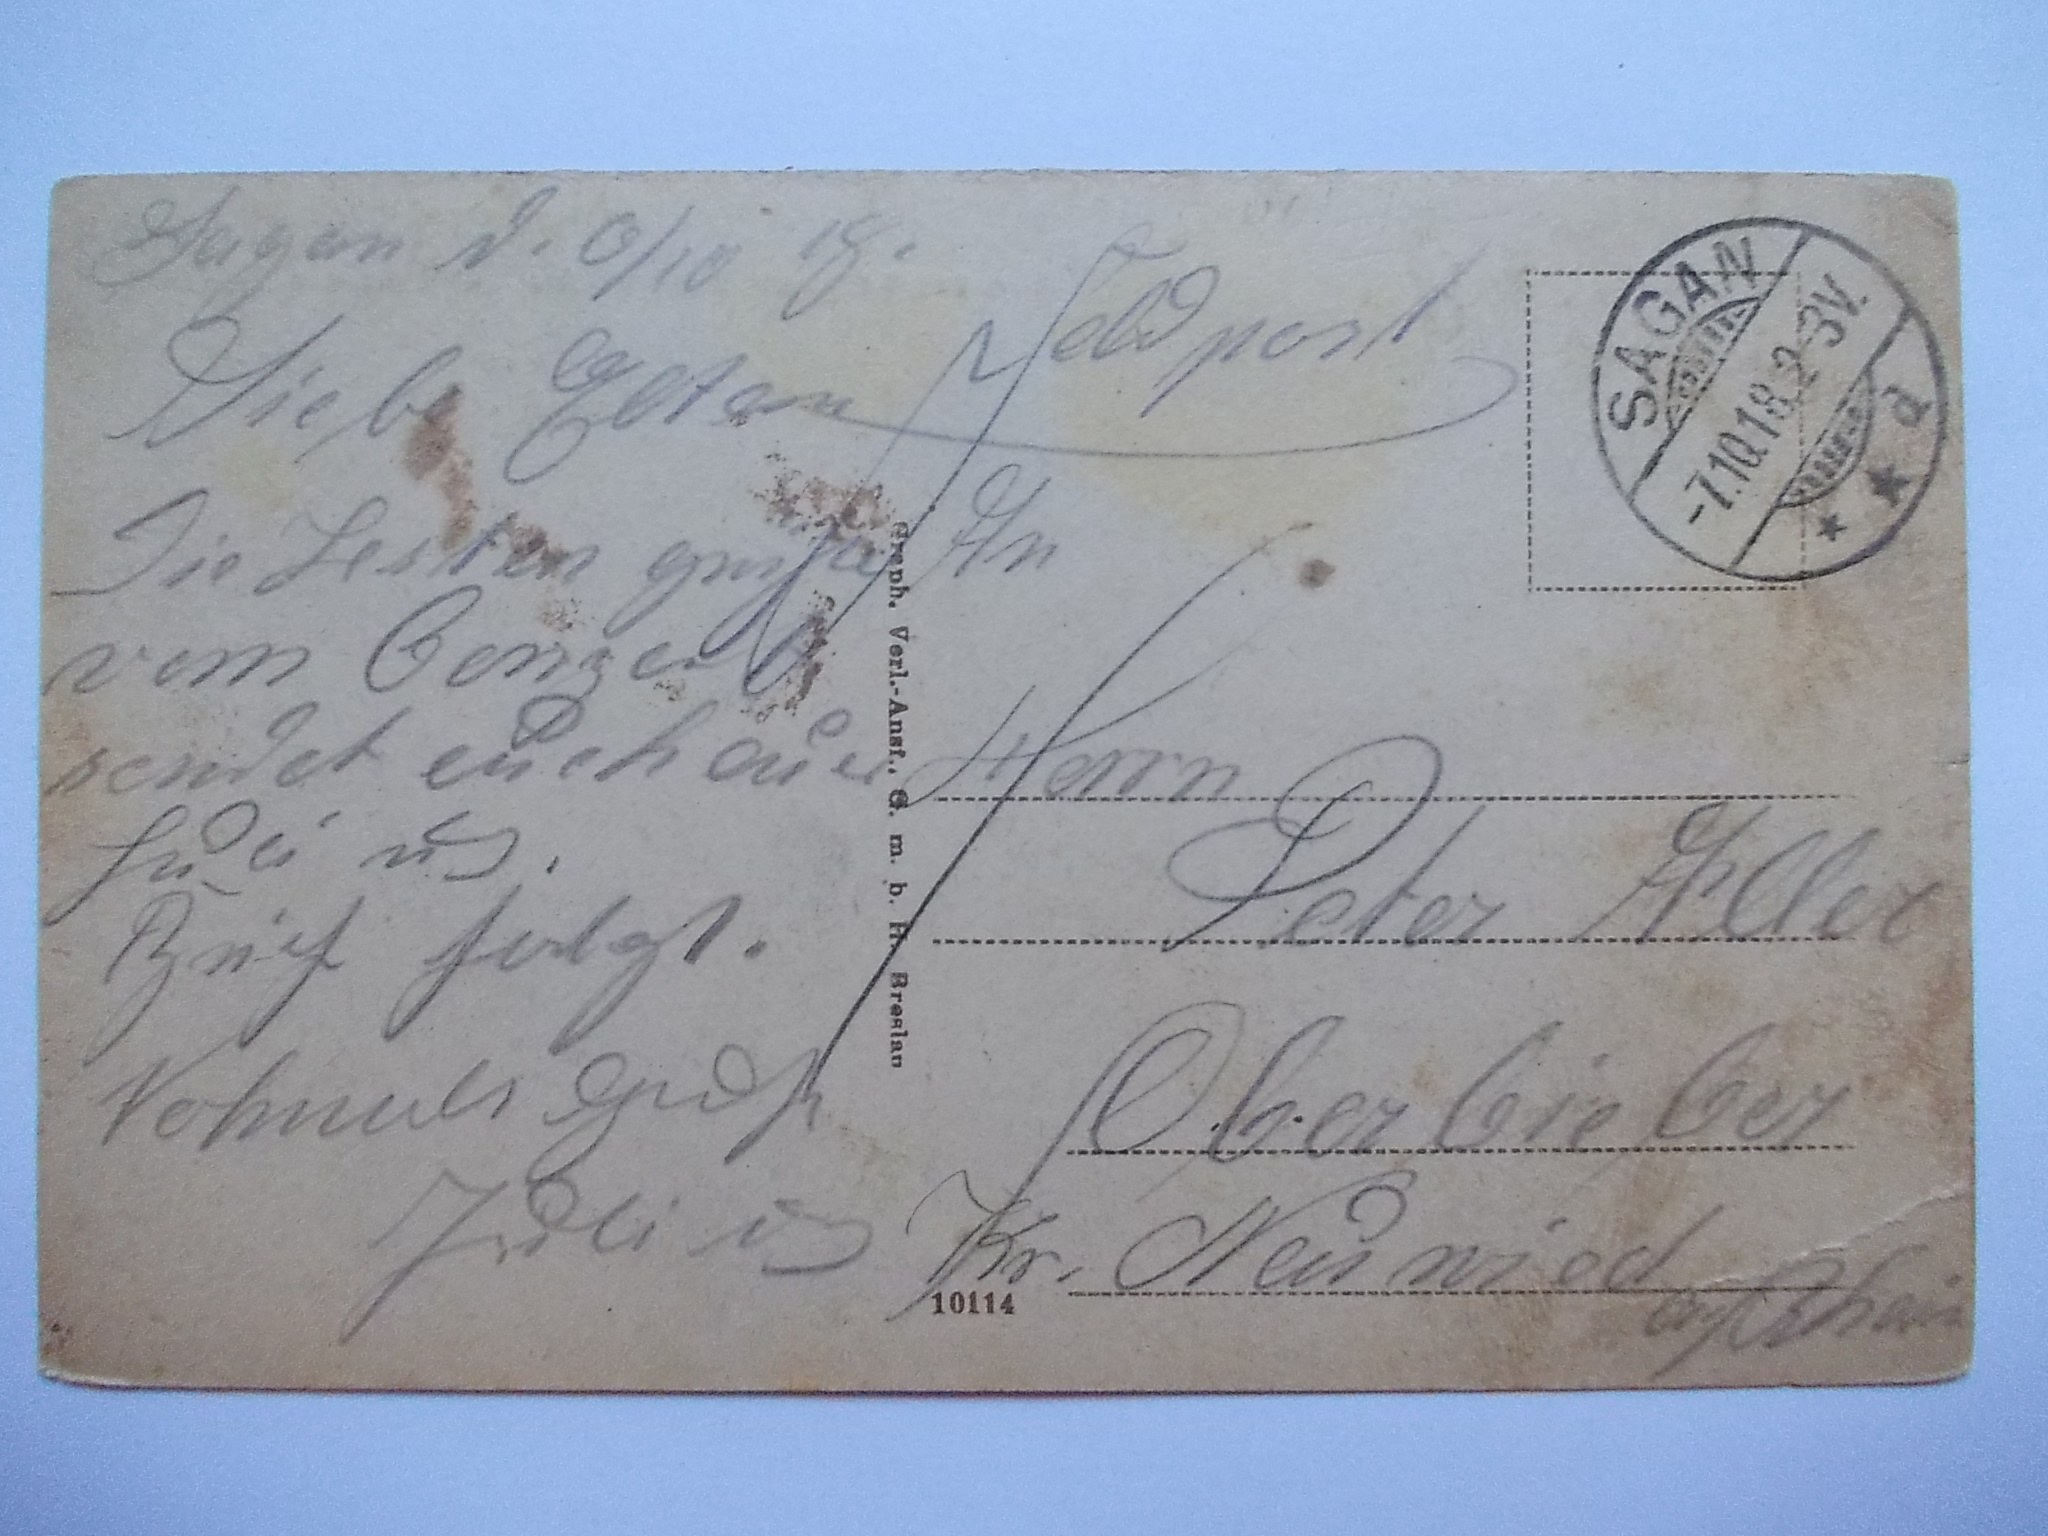 Sagan d. 6/10 18.
Liebe Eltern
Die besten grüße
vom Conzert
sendet eüch eüer
Jüliüs.
Brief folgt.
Nohmals Grüß
Jüliüs
Feldpost
An
Herrn
Peter Aller
Oberbieber
Kr. Neüwied
a/Rhein
SAGAN
-7.10.18.2-3V.
d
Graph. Verl.-Anst., G. m. b. H. Breslau
10114